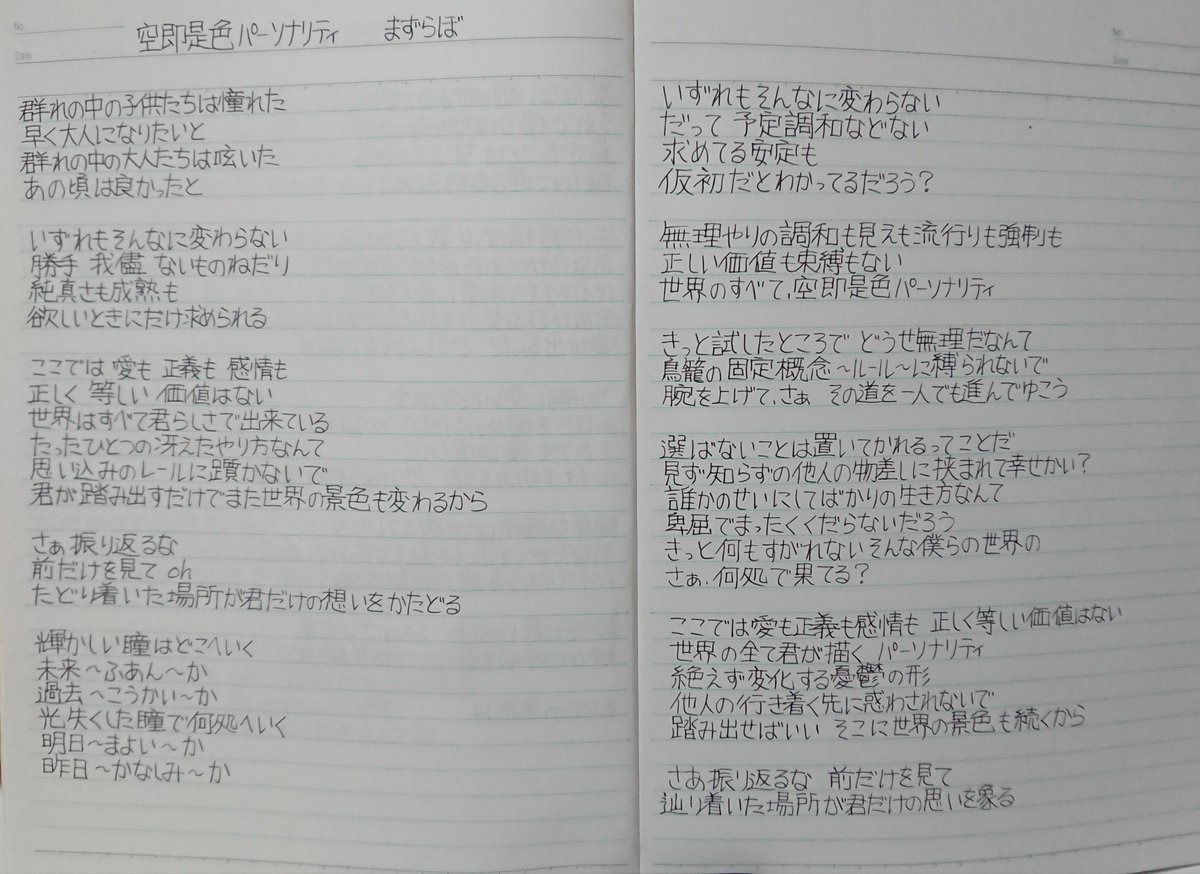 No.
Date
空即是色パーソナリティ　まずらぼ
群れの中の子供たちは憧れた
早く大人になりたいと
群れの中の大人たちは呟いた
あの頃は良かったと
いずれもそんなに変わらない
勝手 我儘 ないものねだり
純真さも成熟も
欲しいときにだけ求められる
ここでは 愛も 正義も 感情も
正しく 等しい 価値はない
世界はすべて君らしさで出来ている
たったひとつの冴えたやり方なんて
思い込みのレールに躓かないで
君が踏み出すだけでまた世界の景色も変わるから
さぁ振り返るな
前だけを見て oh
たどり着いた場所が君だけの想いをかたどる
輝かしい瞳はどこへいく
未来～ふあん～か
過去～こうかい～か
光失くした瞳で何処へいく
明日～まよい～か
昨日～かなしみ～か
No.
Date
いずれもそんなに変わらない
だって 予定調和などない
求めてる安定も
仮初だとわかってるだろう？
無理やりの調和も見えも流行りも強制も
正しい価値も束縛もない
世界のすべて、空即是色パーソナリティ
きっと試したところで どうせ無理だなんて
鳥籠の固定概念～ルール～に縛られないで
腕を上げて、さぁ その道を一人でも進んでゆこう
選ばないことは置いてかれるってことだ
見ず知らずの他人の物差しに挟まれて幸せかい？
誰かのせいにしてばかりの生き方なんて
卑屈でまったくくだらないだろう
きっと何もすがれないそんな僕らの世界の
さぁ、何処で果てる？
ここでは愛も正義も感情も 正しく等しい価値はない
世界の全て君が描く パーソナリティ
絶えず変化する憂鬱の形
他人の行き着く先に惑わされないで
踏み出せばいい そこに世界の景色も続くから
さあ振り返るな 前だけを見て
辿り着いた場所が君だけの思いを象る